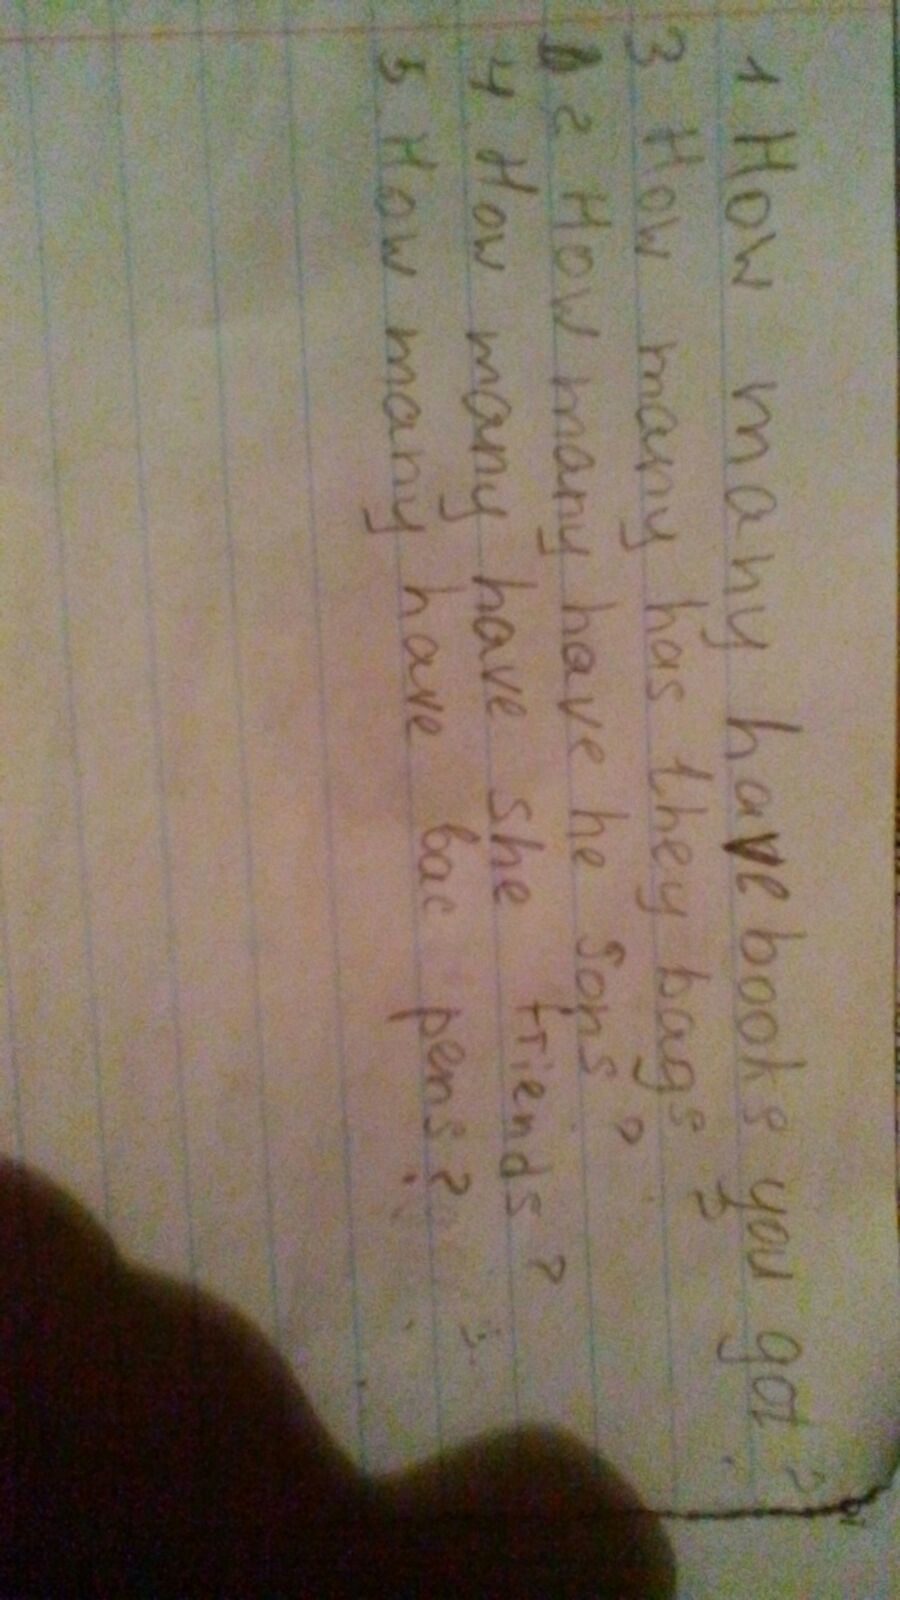 1 How many have books you got?
3 How many has they bags?
2 How many have he sons?
4 How many have she friends?
5. How many have bac pens?